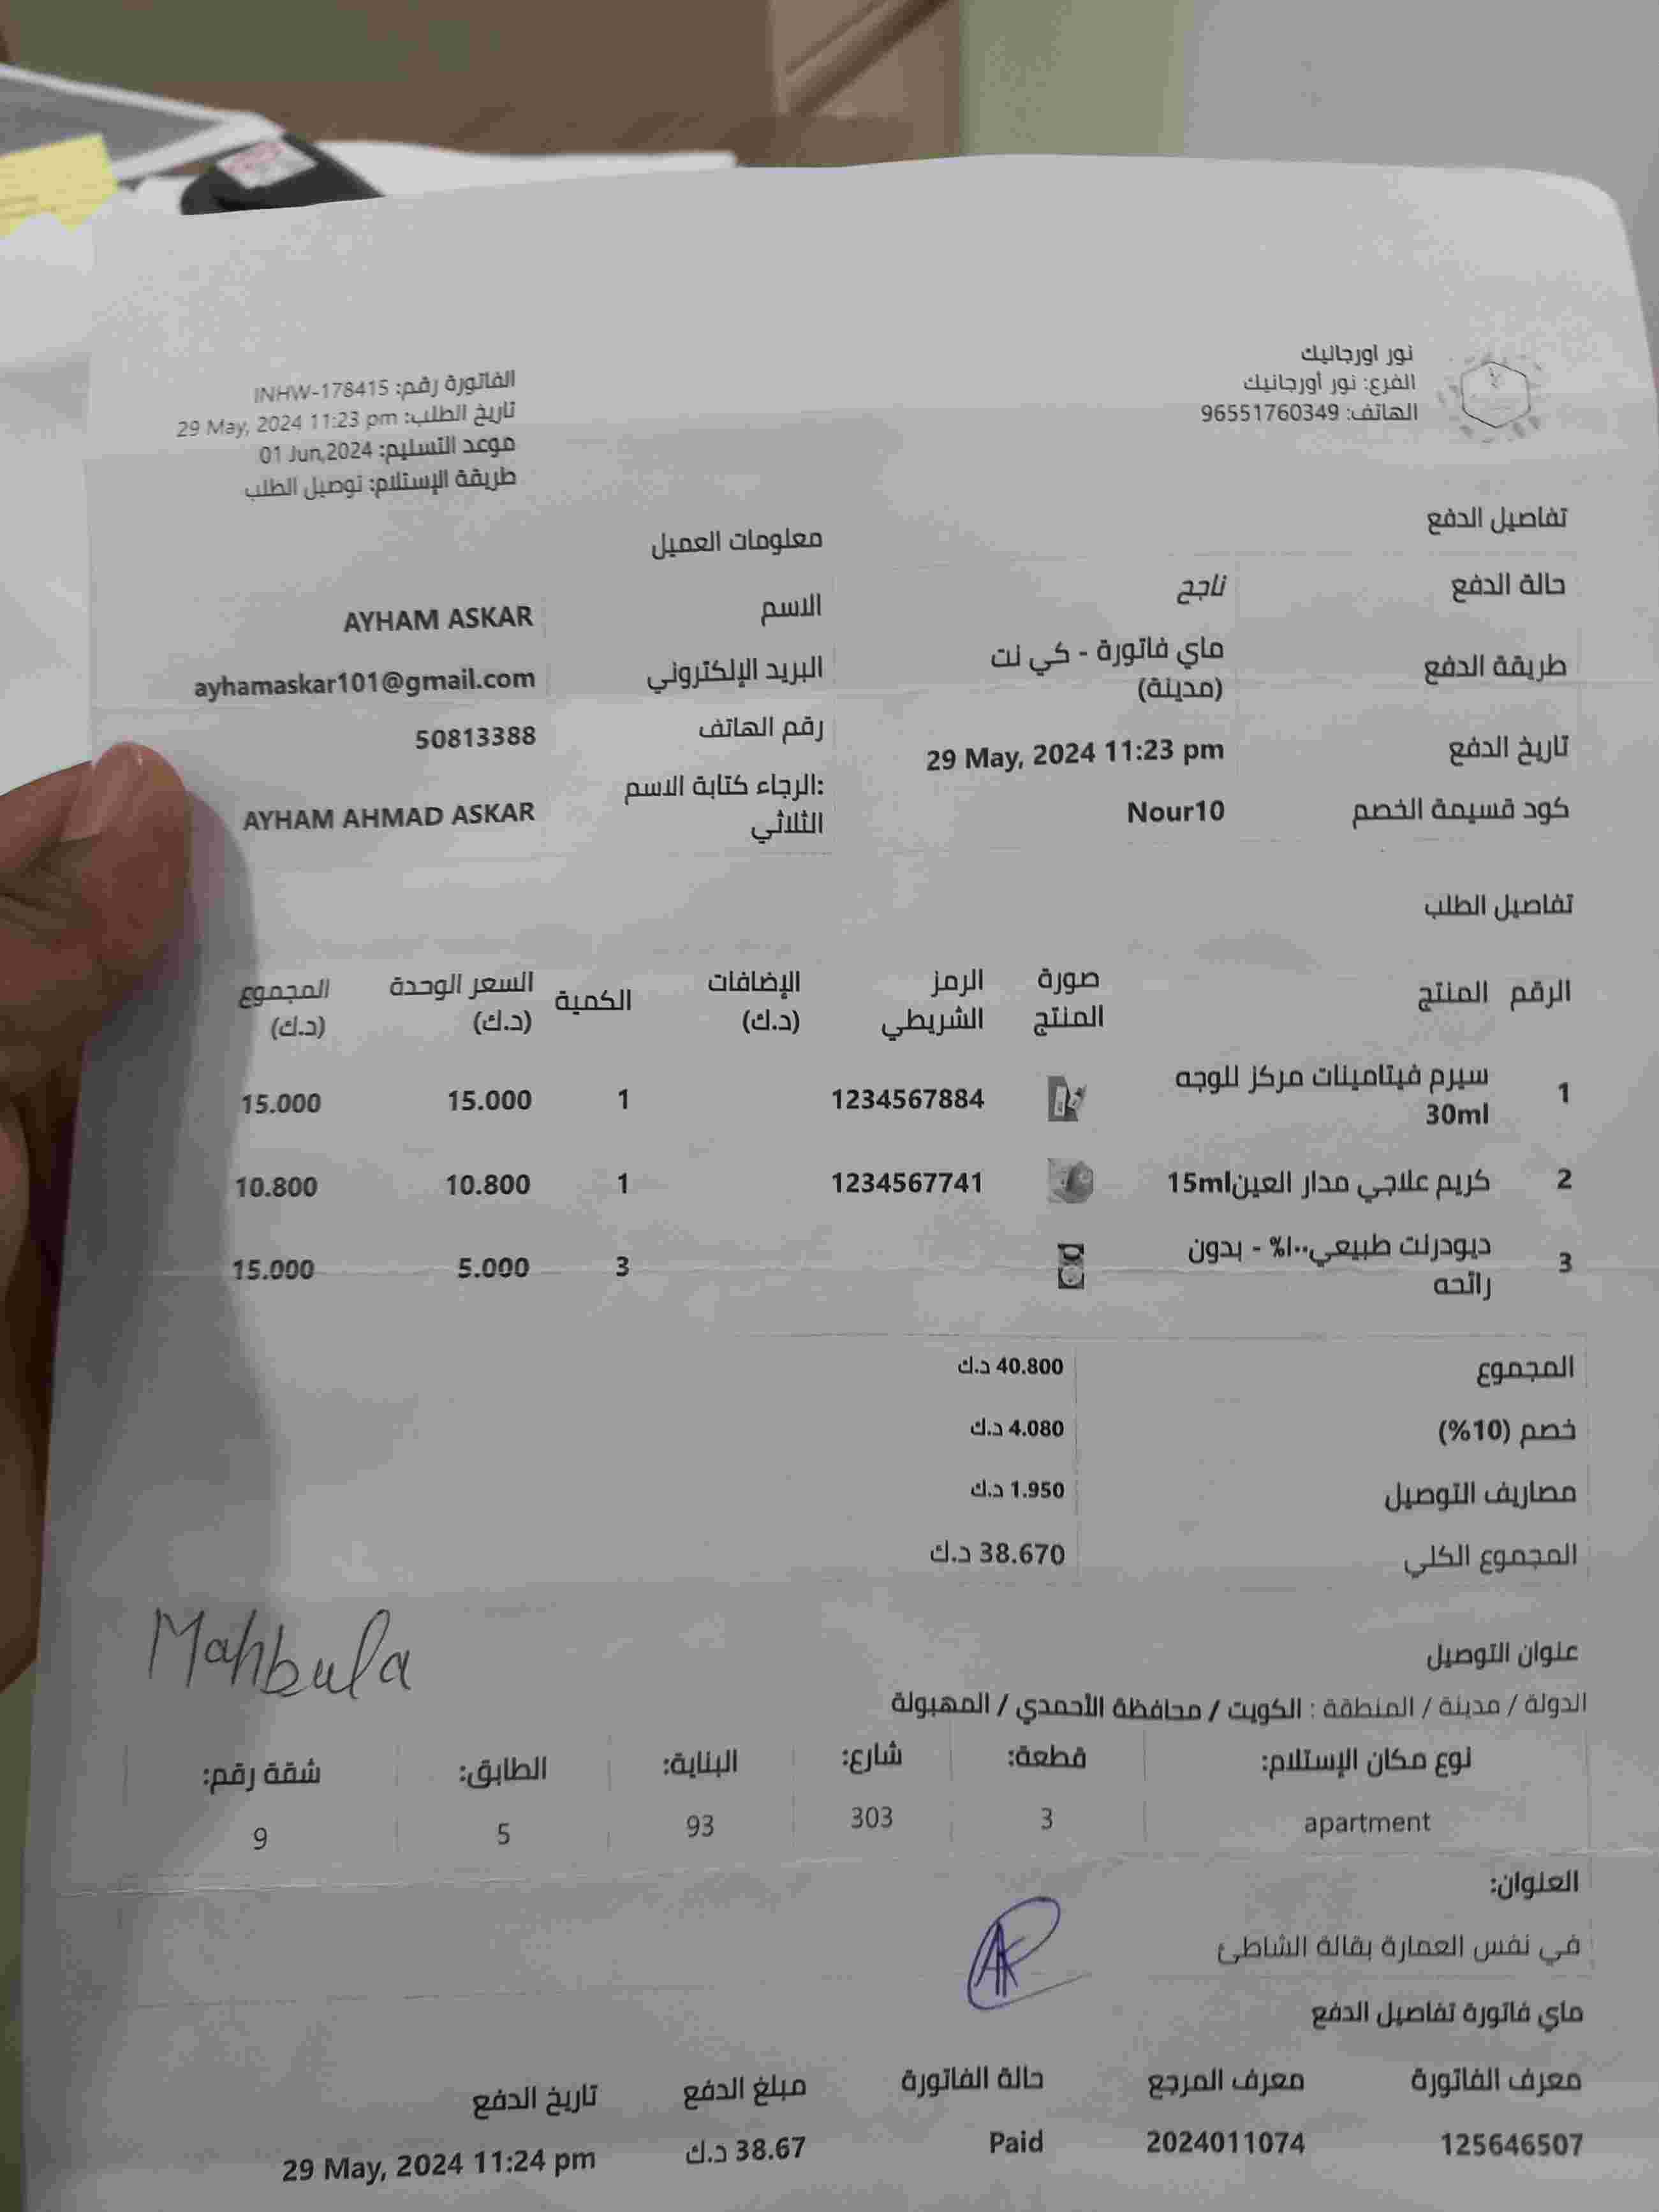 نور اورجانيك
الفرع: نور أورجانيك
الهاتف: 96551760349
الفاتورة رقم: INHW-178415
تاريخ الطلب: 29 May, 2024 11:23 pm
موعد التسليم: 01 Jun,2024
طريقة الإستلام: توصيل الطلب
تفاصيل الدفع
حالة الدفع ناجح
طريقة الدفع ماي فاتورة - كي نت
(مدينة)
تاريخ الدفع 29 May, 2024 11:23 pm
كود قسيمة الخصم Nour10
معلومات العميل
الاسم AYHAM ASKAR
البريد الإلكتروني ayhamaskar101@gmail.com
رقم الهاتف 50813388
:الرجاء كتابة الاسم AYHAM AHMAD ASKAR
الثلاثي
تفاصيل الطلب
الرقم المنتج صورة الرمز الإضافات الكمية السعر الوحدة المجموع
المنتج الشريطي (د.ك) (د.ك) (د.ك)
1 سيرم فيتامينات مركز للوجه 1234567884 1 15.000 15.000
30ml
2 كريم علاجي مدار العين15ml 1234567741 1 10.800 10.800
3 ديودرنت طبيعي١٠٠% - بدون 3 5.000 15.000
رائحه
المجموع 40.800 د.ك
خصم (10%) 4.080 د.ك
مصاريف التوصيل 1.950 د.ك
المجموع الكلي 38.670 د.ك
Mahbula
عنوان التوصيل
الدولة / مدينة / المنطقة : الكويت / محافظة الأحمدي / المهبولة
نوع مكان الإستلام: قطعة: شارع: البناية: الطابق: شقة رقم:
apartment 3 303 93 5 9
العنوان:
في نفس العمارة بقالة الشاطئ
ماي فاتورة تفاصيل الدفع
معرف الفاتورة معرف المرجع حالة الفاتورة مبلغ الدفع تاريخ الدفع
125646507 2024011074 Paid 38.67 د.ك 29 May, 2024 11:24 pm